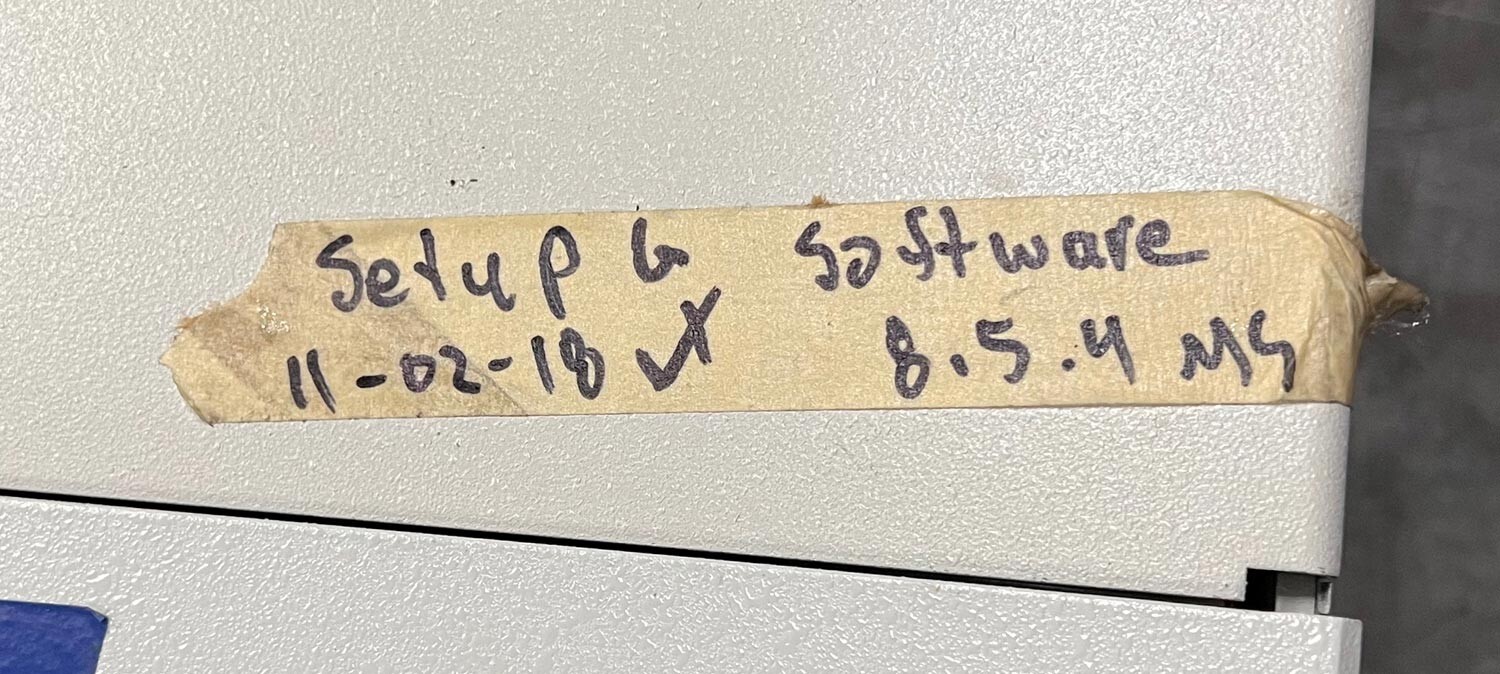 Setup G Software
11-02-18 ✓ 8.5.4 MS